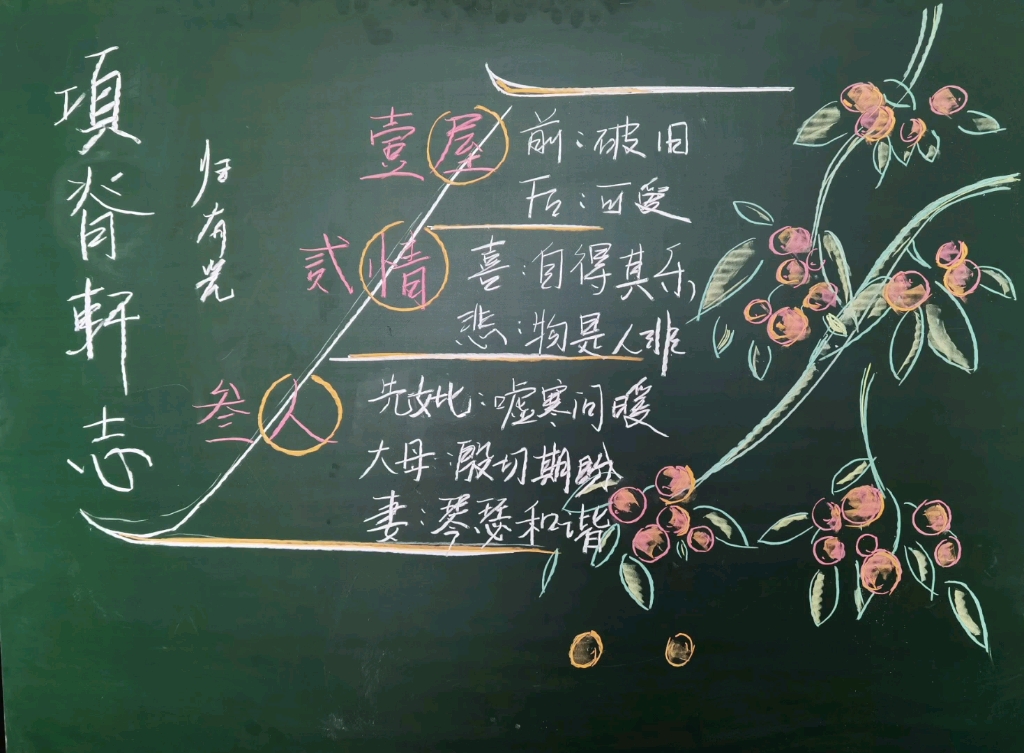 項脊軒志
归有光
壹屋
前：破旧
后：可爱
贰情
喜：自得其乐
悲：物是人非
叁人
先妣：嘘寒问暖
大母：殷切期盼
妻：琴瑟和谐